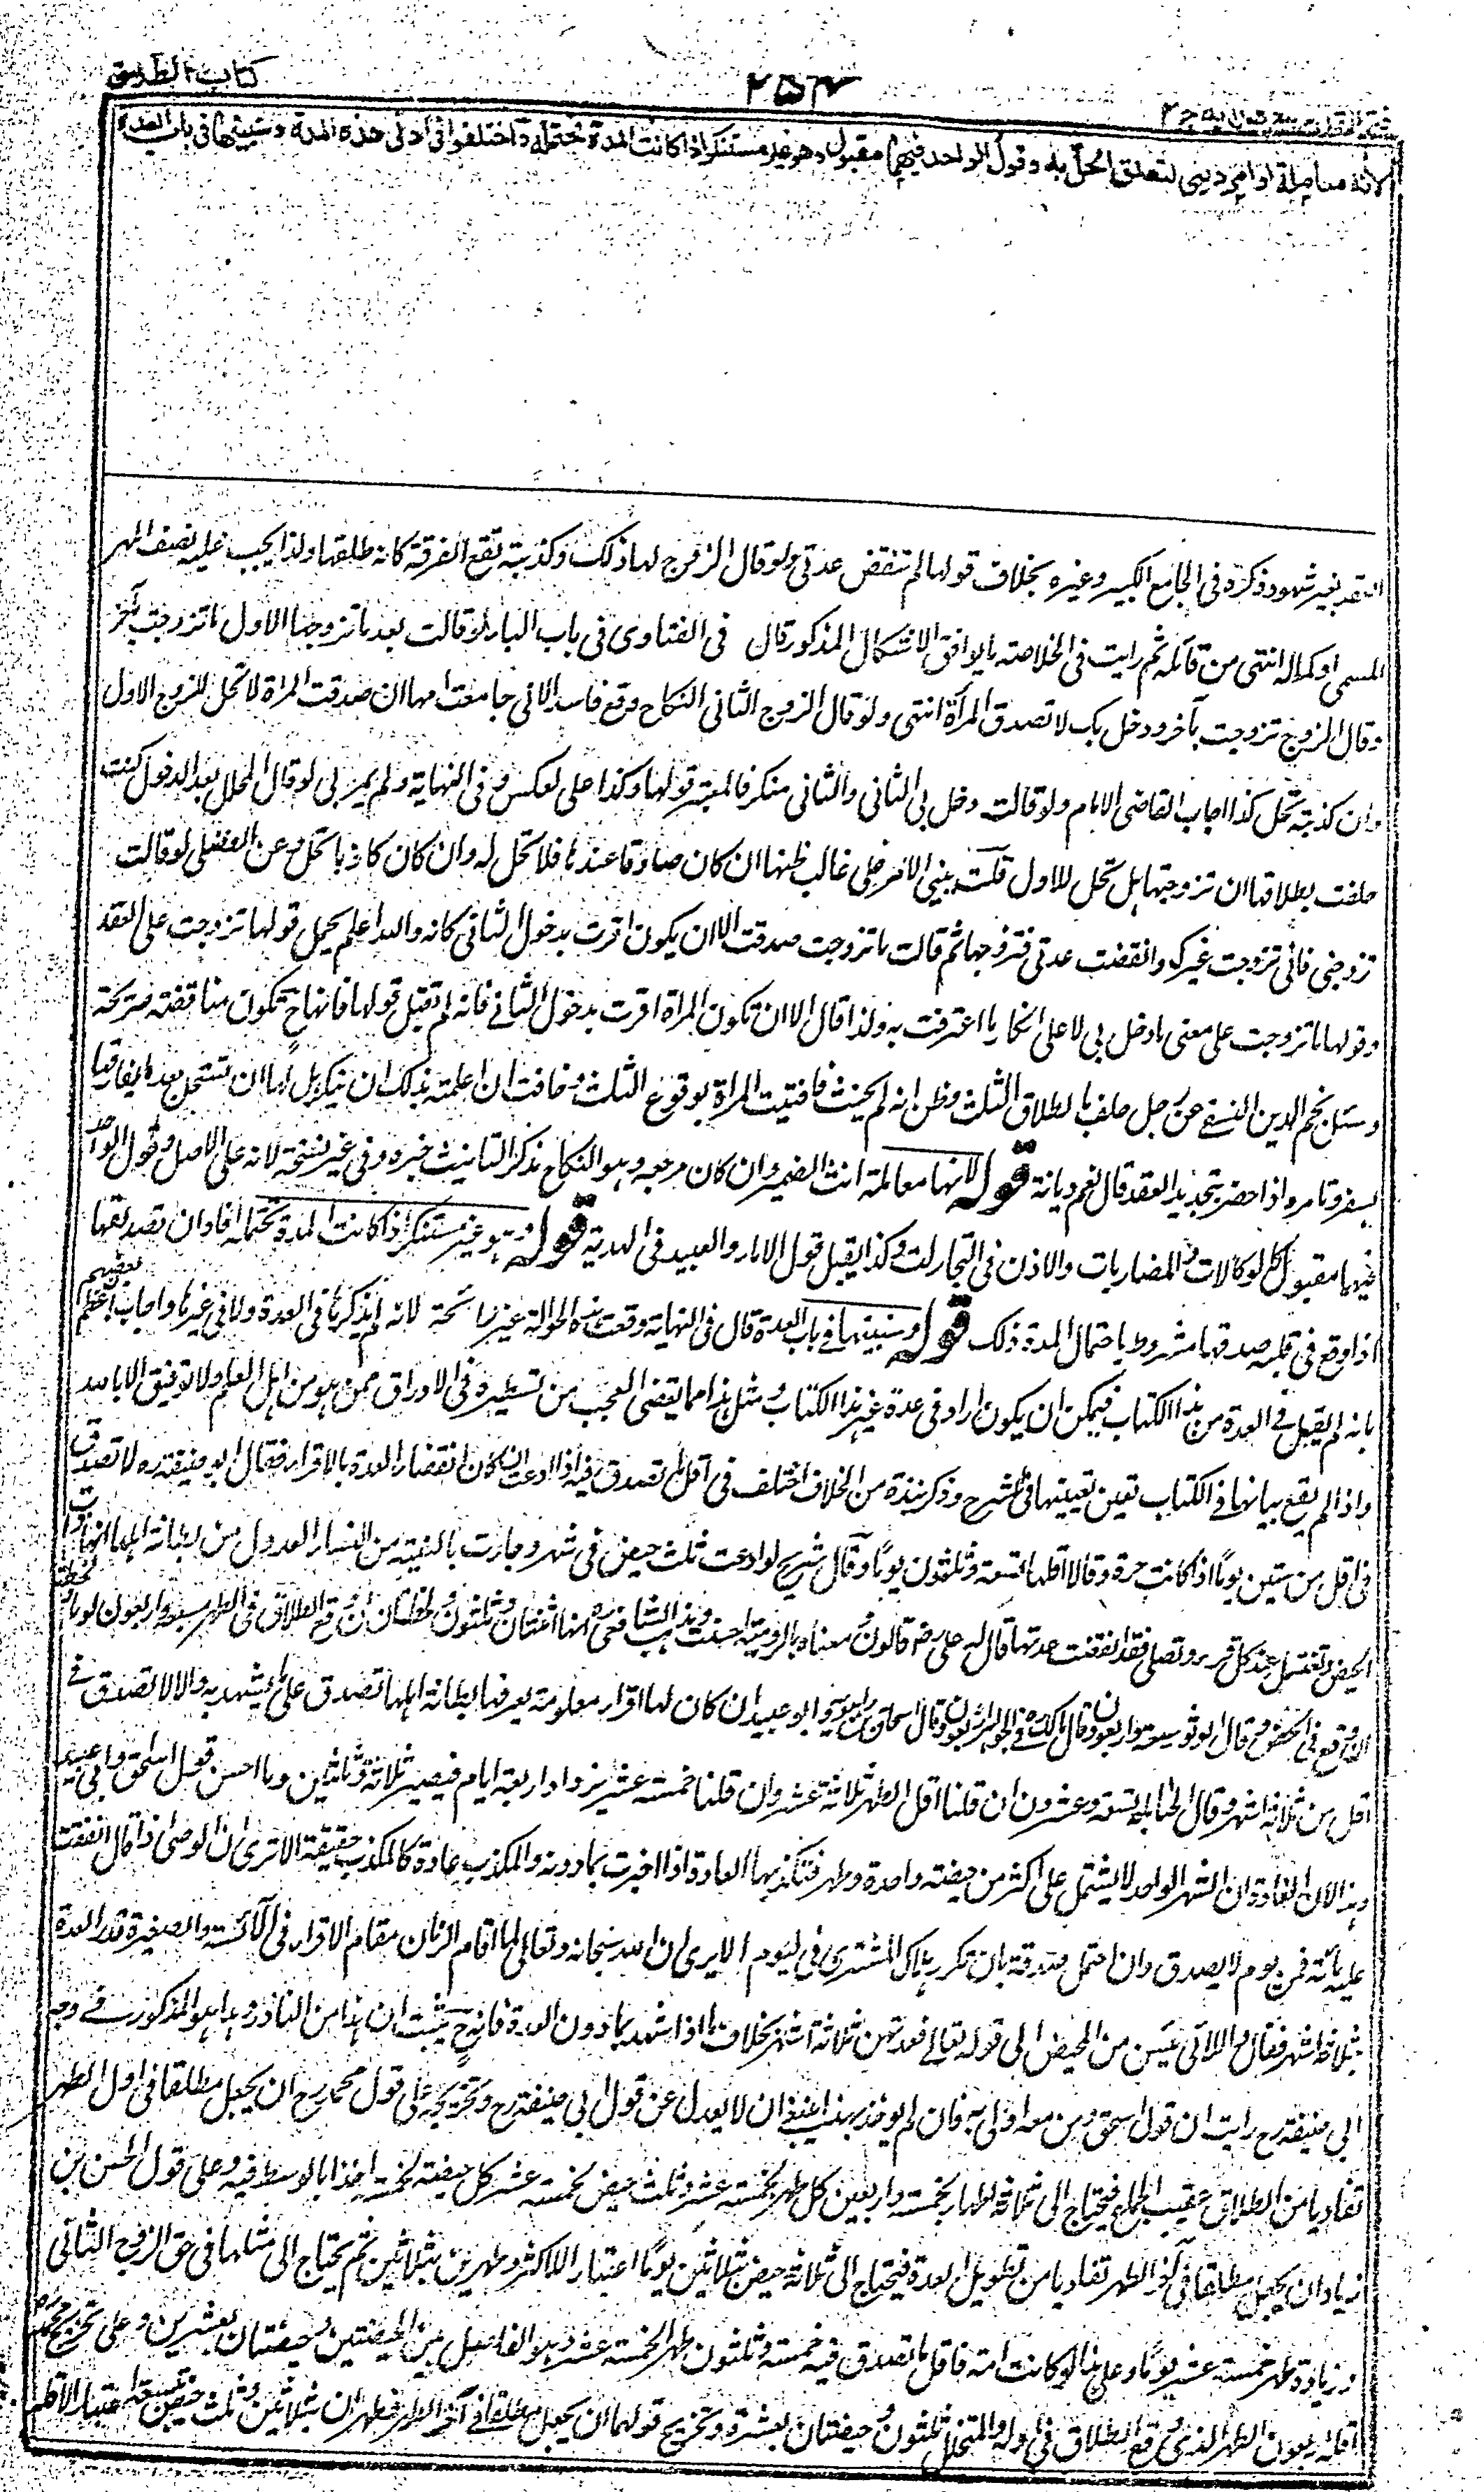 كتاب الطلاق
٢٥٤
لانه معاملة او امر ديني لتعلق الحل به وقول الواحد فيهما مقبول وهو غير مستنكر اذا كانت المدة تحتمله واختلفوا في ادنى هذه المدة وسنبينها في باب العدة
العقد بغير شهود ذكره في الجامع الكبير وغيره بخلاف قولها لم تنقض عدتي ولو قال الزوج لها ذلك وكذبته تقع الفرقة كانه طلقها ولذا يجب عليه نصف المهر
المسمى او كماله انتهى من قائله ثم رايت في الخلاصة ما يوافق الاشكال المذكور قال في الفتاوى في باب الباء لو قالت بعد ما تزوجها الاول ما تزوجت بآخر
وقال الزوج تزوجت بآخر ودخل بك لا تصدق المرأة انتهى ولو قال الزوج الثاني النكاح وقع فاسدا لاني جامعت امها ان صدقت المراة لا تحل للزوج الاول
وان كذبته تحل كذا اجاب القاضي الامام ولو قالت دخل بي الثاني والثاني منكر فالمعتبر قولها وكذا على العكس وفي النهاية ولم يمر بي لو قال المحلل بعد الدخول كنت
حلفت بطلاقها ان تزوجتها هل تحل للاول قلت يبنى الامر على غالب ظنها ان كان صادقا عندها فلا تحل له وان كان كاذبا تحل وعن الفضلي لو قالت
تزوجني فاني تزوجت غيرك وانقضت عدتي فتزوجها ثم قالت ما تزوجت صدقت الا ان يكون اقرت بدخول الثاني كانه والله اعلم يحمل قولها تزوجت على العقد
وقولها ما تزوجت على معنى ما دخل بي لا على انكار ما اعترفت به ولذا قال الا ان تكون المراة اقرت بدخول الثاني فانه لم تقبل قولها فانها ح تكون مناقضة صريحة
وسئل نجم الدين النسفي عن رجل حلف بالطلاق الثلث وظن انه لم يحنث فافتيت المراة بوقوع الثلث وخافت ان اعلمته بذلك ان ينكر هل لها ان تستحل بعد ما يفارقها
بسفر وتامره اذا حضر بتجديد العقد قال نعم ديانة قوله لانها معاملة انث الضمير وان كان مرجعه وهو النكاح يذكر لتانيث خبره وفي غير نسخة لانه على الاصل وقول الواحد
فيها مقبول كالوكالات والمضاربات والاذن في التجارات وكذا يقبل قول الاماء والعبيد في الهدية قوله وهو غير مستنكر اذا كانت المدة تحتمله افاد ان تصديقها
اذا وقع في قلبه صدقها مشروط باحتمال المدة ذلك قوله وسنبينها في باب العدة قال في النهاية وقعت هذه الحوالة غير رائجة لانه لم يذكرها في العدة ولا في غيرها واجاب بعضهم
بانه لم يقل في العدة من هذا الكتاب فيمكن ان يكون اراد في عدة غير هذا الكتاب ومثل هذا مما يقضى العجب من تسطيره في الاوراق ممن هو من اهل العلم ولا توفيق الا بالله
واذا لم يقع بيانها في الكتاب تعين تعيينها في الشرح وذكر نبذة من الخلاف اختلف في اقل ما تصدق فيه اذا ادعت ان كان انقضاء العدة بالاقراء فقال ابو حنيفة ره لا تصدق
في اقل من ستين يوما اذا كانت حرة وقالا اقلها تسعة وثلثون يوما وقال شريح لو ادعت ثلث حيض في شهر وجاءت بالبينة من النساء العدول من بطانة اهلها انها رات
الحيض وتغتسل عند كل قرء وتصلي فقد انقضت عدتها قال له علي رضي قالون معناه بالرومية احسنت ومذهب الشافعي ره انها اثنتان وثلثون ولحظتان ان وقع الطلاق في الطهر سبعة واربعون لو
وقع في الحيض وقال ابو ثور سبعة واربعون وقال مالك ره في الجواهر اربعون وقال اسحاق بن راهويه وابو عبيد ان كان لها اقراء معلومة يعرفها بطانة اهلها تصدق على ما يشهد به والا لا تصدق في
اقل من ثلاثة اشهر وقال الحنابلة تسعة وعشرون ان قلنا اقل الطهر ثلاثة عشر وان قلنا خمسة عشر يزداد اربعة ايام فيصير ثلاثة وثلثين وما احسن قول اسحق وابي عبيد
وهذا لان العادة ان الشهر الواحد لا يشتمل على اكثر من حيضة واحدة وطهر فتكذبها العادة اذا اخبرت بما دونه والمكذب عادة كالمكذب حقيقة الا ترى ان الوصي اذا قال انفقت
عليه مائة في يوم لا يصدق وان احتمل صدقه بان تكرر هلاك المشترى في اليوم الا يرى ان الله سبحانه وتعالى لما اقام الزمان مقام الاقراء في الآئسة والصغيرة قدر العدة
بثلاثة اشهر فقال واللائي يئسن من المحيض الى قوله تعالى فعدتهن ثلاثة اشهر بخلاف ما اذا شهد بما دون العدة فانه ح يثبت ان هذا من النادر وهذا هو المذكور في وجه
ابي حنيفة رح رايت ان قول اسحق ومن معه اولى به فان لم يوخذ بهذا ينبغي ان لا يعدل عن قول ابي حنيفة رح وتخريجه على قول محمد رح ان يجعل مطلقا في اول الطهر
تفاديا من الطلاق عقيب الجماع فيحتاج الى ثلاثة اطهار بخمسة واربعين كل طهر بخمسة عشر وثلث حيض بخمسة عشر كل حيضة بخمسة اخذا بالوسط فيه وعلى قول الحسن بن
زياد ان يجعل مطلقا في آخر الطهر تفاديا من تطويل العدة فيحتاج الى ثلاثة حيض بثلاثين يوما اعتبارا للاكثر وطهرين بثلاثين ثم يحتاج الى مثلها في حق الزوج الثاني
وزيادة طهر خمسة عشر يوما وعلى هذا لو كانت امة فاقل ما تصدق فيه خمسة وثلثون طهر بخمسة عشر وهو الفاصل بين الحيضتين وحيضتان بعشرين وعلى تخريج محمد رح
اقله اربعون الطهر الذي وقع الطلاق في اوله والمتخلل ثلثون وحيضتان بعشرة وتخريج قولهما ان يجعل مطلقا في آخر الطهر فطهران بثلاثين وثلث حيض بتسعة اعتبارا للاقل